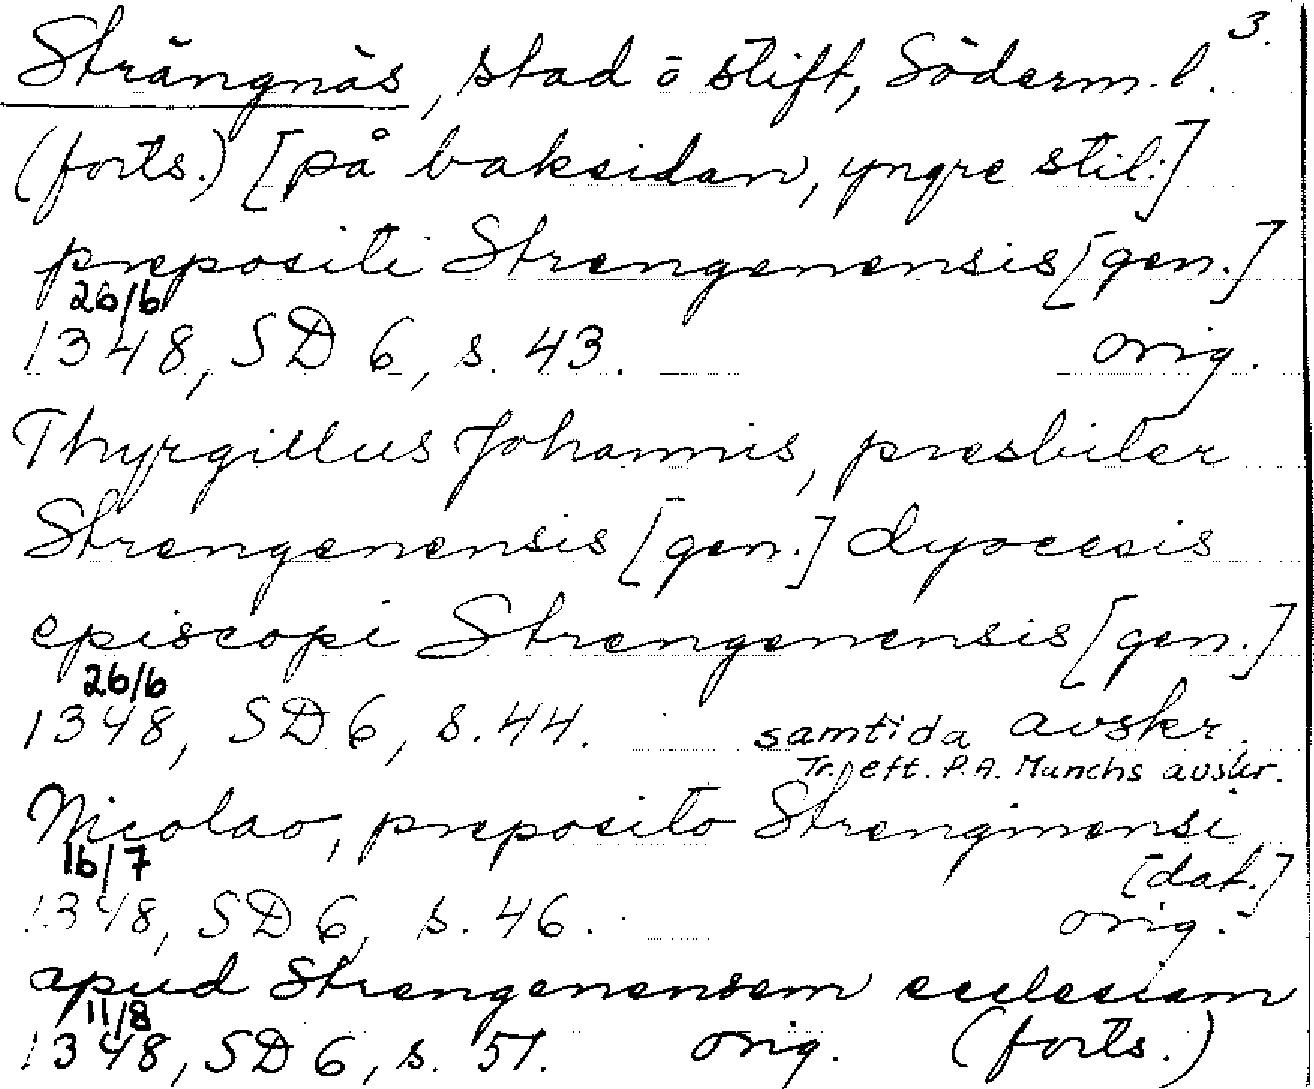 3.
Strängnäs, stad o stift, Söderm. l.
(forts.) [på baksidan, yngre stil:]
prepositi Strengenensis [gen.]
26/6
1348, SD 6, s. 43. orig.
Thyrgillus Johannis, presbiter
Strengenensis [gen.] dyocesis
episcopi Strengenensis [gen.]
26/6
1348, SD 6, s. 44. samtida avskr.
Tr. eft. P.A. Munchs avskr.
Nicolao, preposito Strenginensi
[dat.]
16/7
1348, SD 6, s. 46. orig.
apud Strengenensem ecclesiam
11/8
1348, SD 6, s. 51. orig. (forts.)